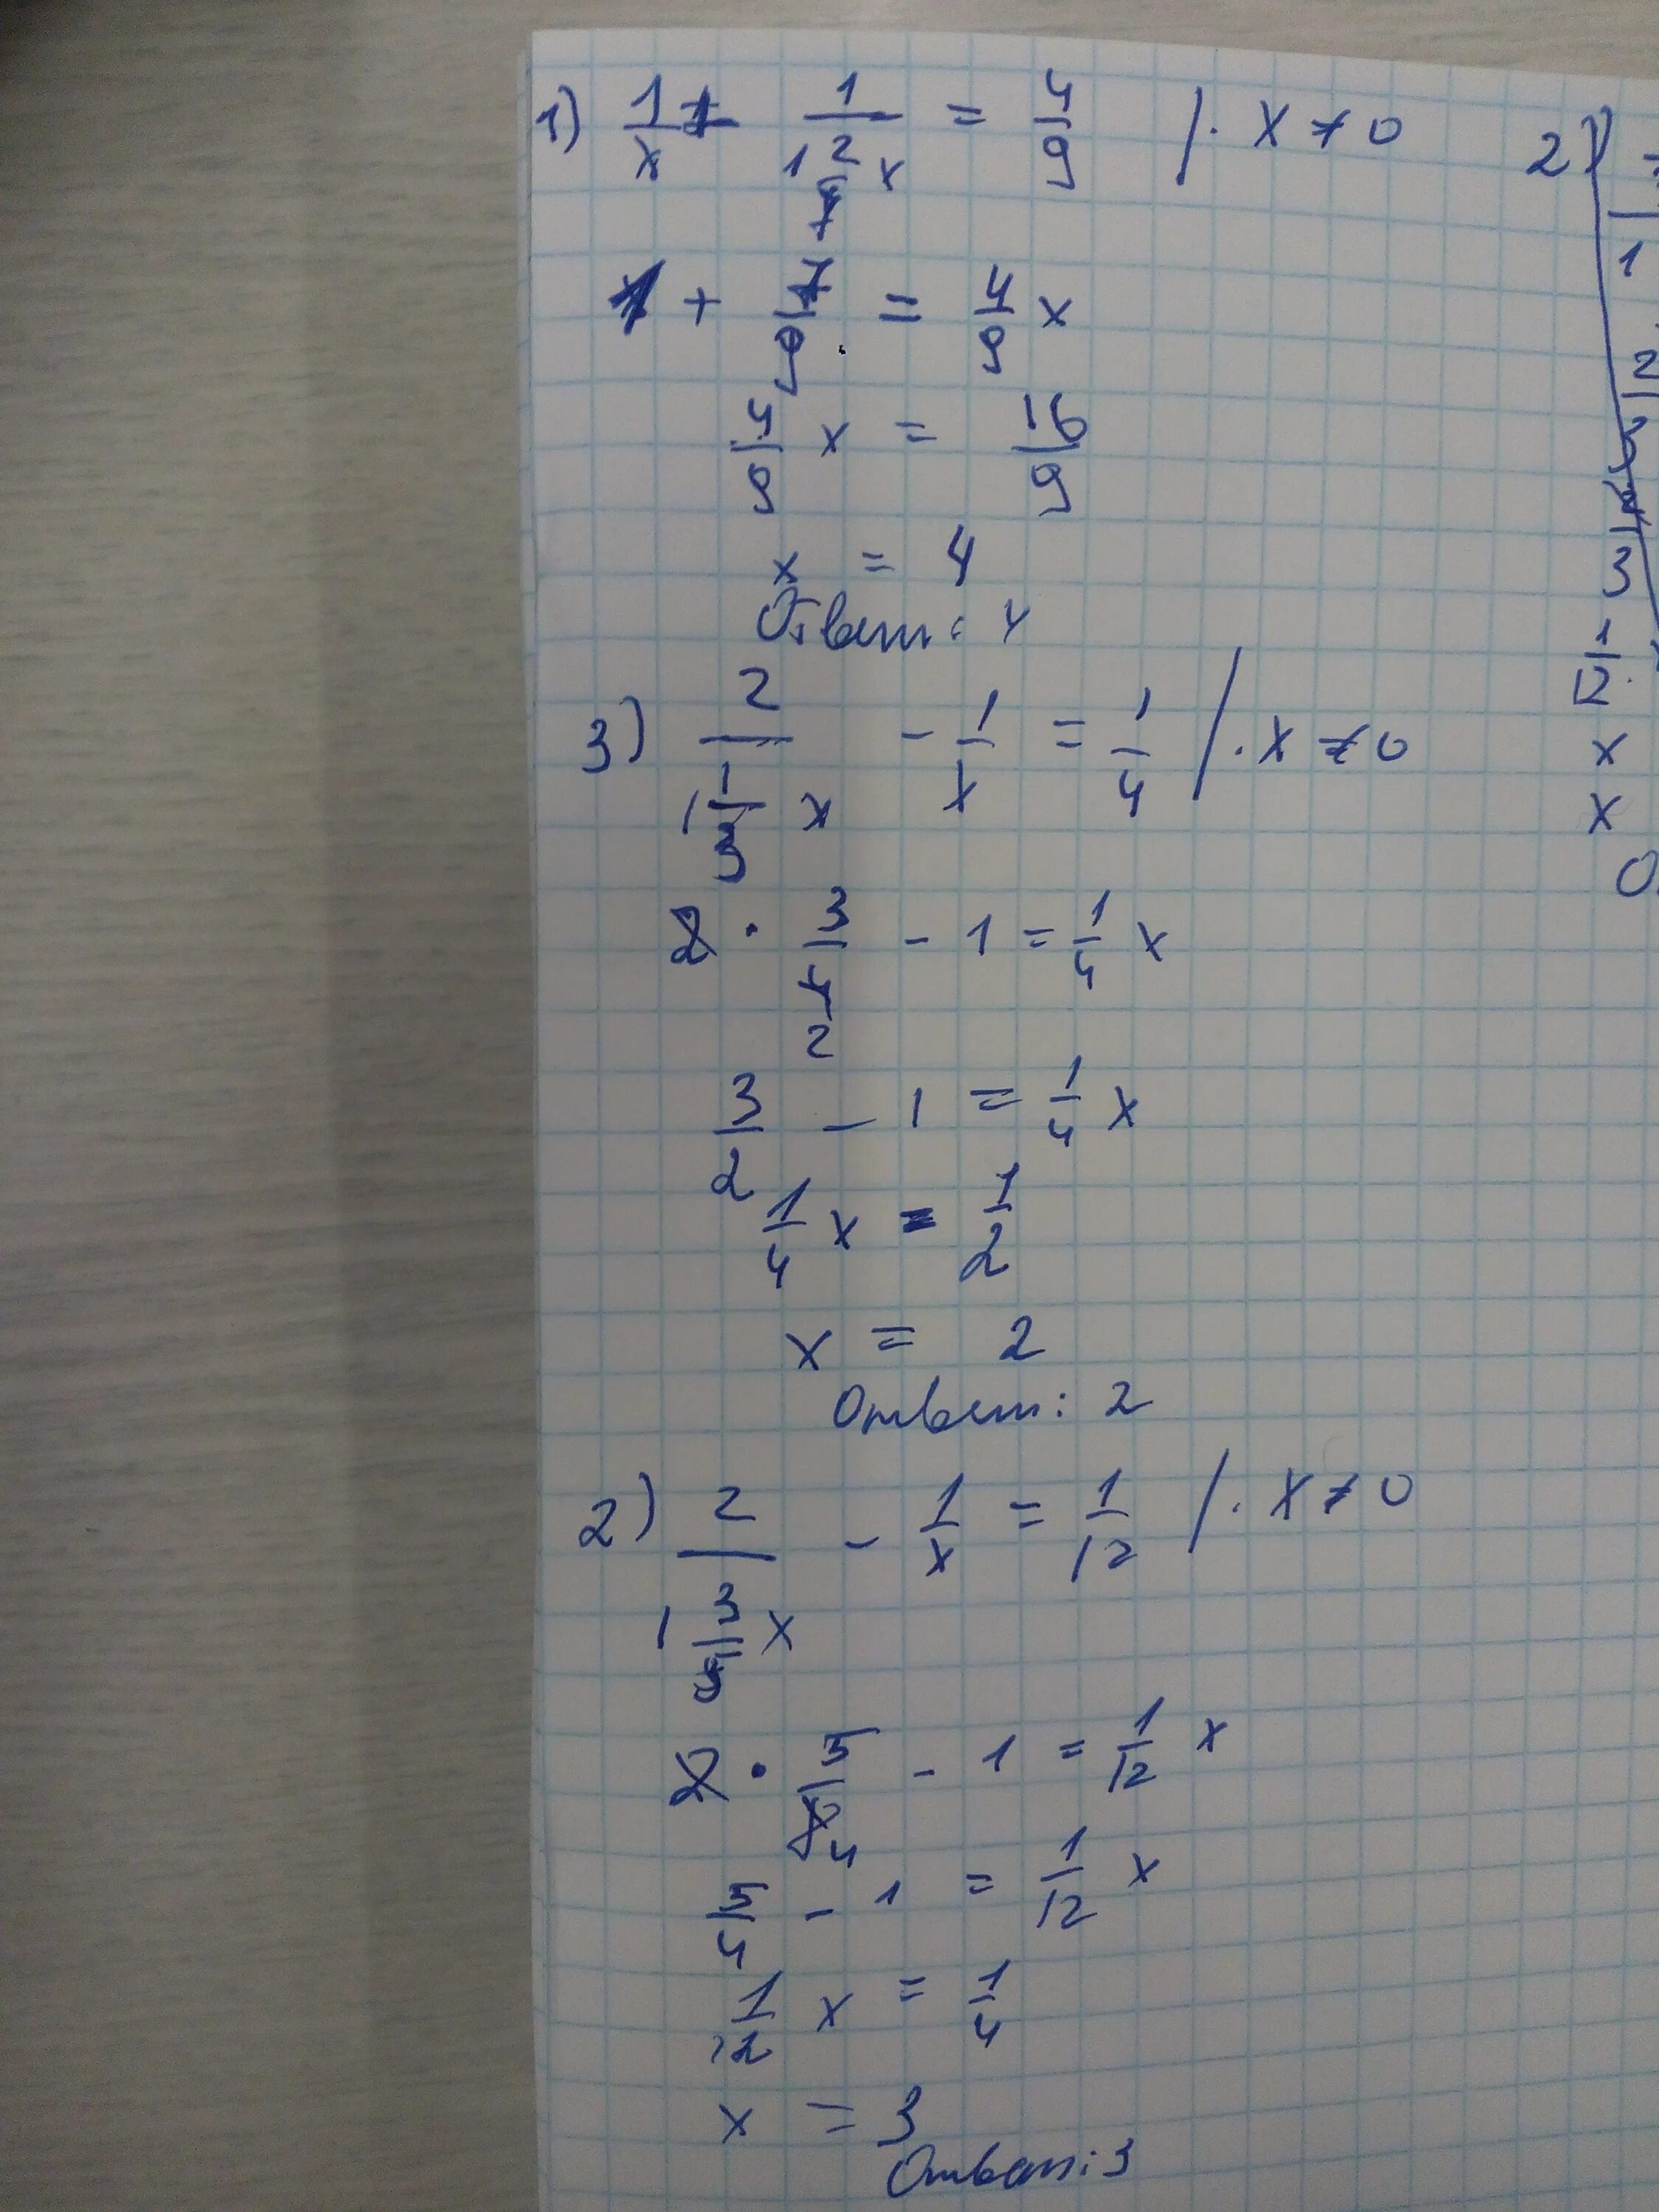 1) 1/x + 1/(1 2/7 x) = 4/9 | · x ≠ 0
1 + 7/9 = 4/9 x
4/9 x = 16/9
x = 4
Ответ: 4
3) 2/(1 1/3 x) - 1/x = 1/4 | · x ≠ 0
2 · 3/4 - 1 = 1/4 x
2
3/2 - 1 = 1/4 x
1/4 x = 1/2
x = 2
Ответ: 2
2) 2/(1 3/5 x) - 1/x = 1/12 | · x ≠ 0
2 · 5/8 - 1 = 1/12 x
4
5/4 - 1 = 1/12 x
1/12 x = 1/4
x = 3
Ответ: 3
2)
1
2
3
1/12
x
x